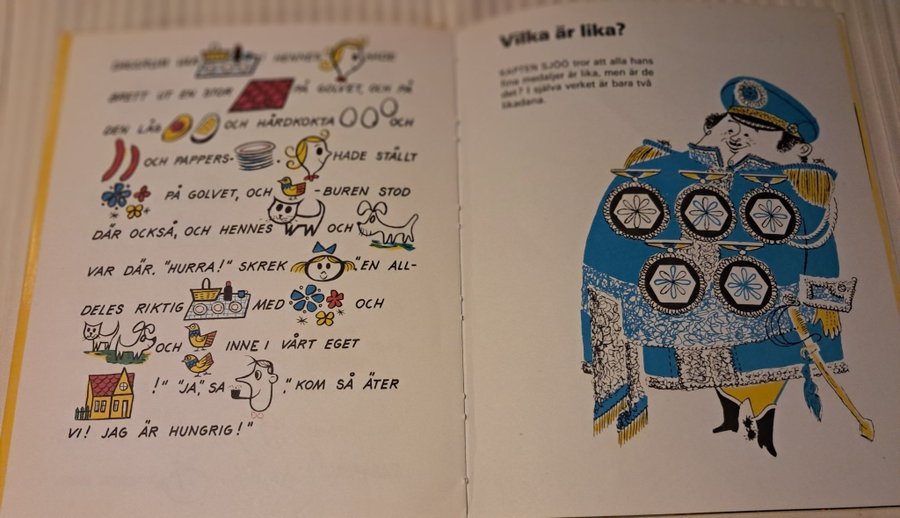 HENNES
BRETT UT EN STOR PÅ GOLVET, OCH PÅ
DEN LÅG OCH HÅRDKOKTA OCH
OCH PAPPERS- . HADE STÄLLT
PÅ GOLVET, OCH -BUREN STOD
DÄR OCKSÅ, OCH HENNES OCH
VAR DÄR. "HURRA!" SKREK "EN ALL-
DELES RIKTIG MED OCH
OCH INNE I VÅRT EGET
!" "JA," SA ", KOM SÅ ÄTER
VI! JAG ÄR HUNGRIG!"
Vilka är lika?
KAPTEN SJÖÖ tror att alla hans
fina medaljer är lika, men är de
det? I själva verket är bara två
likadana.